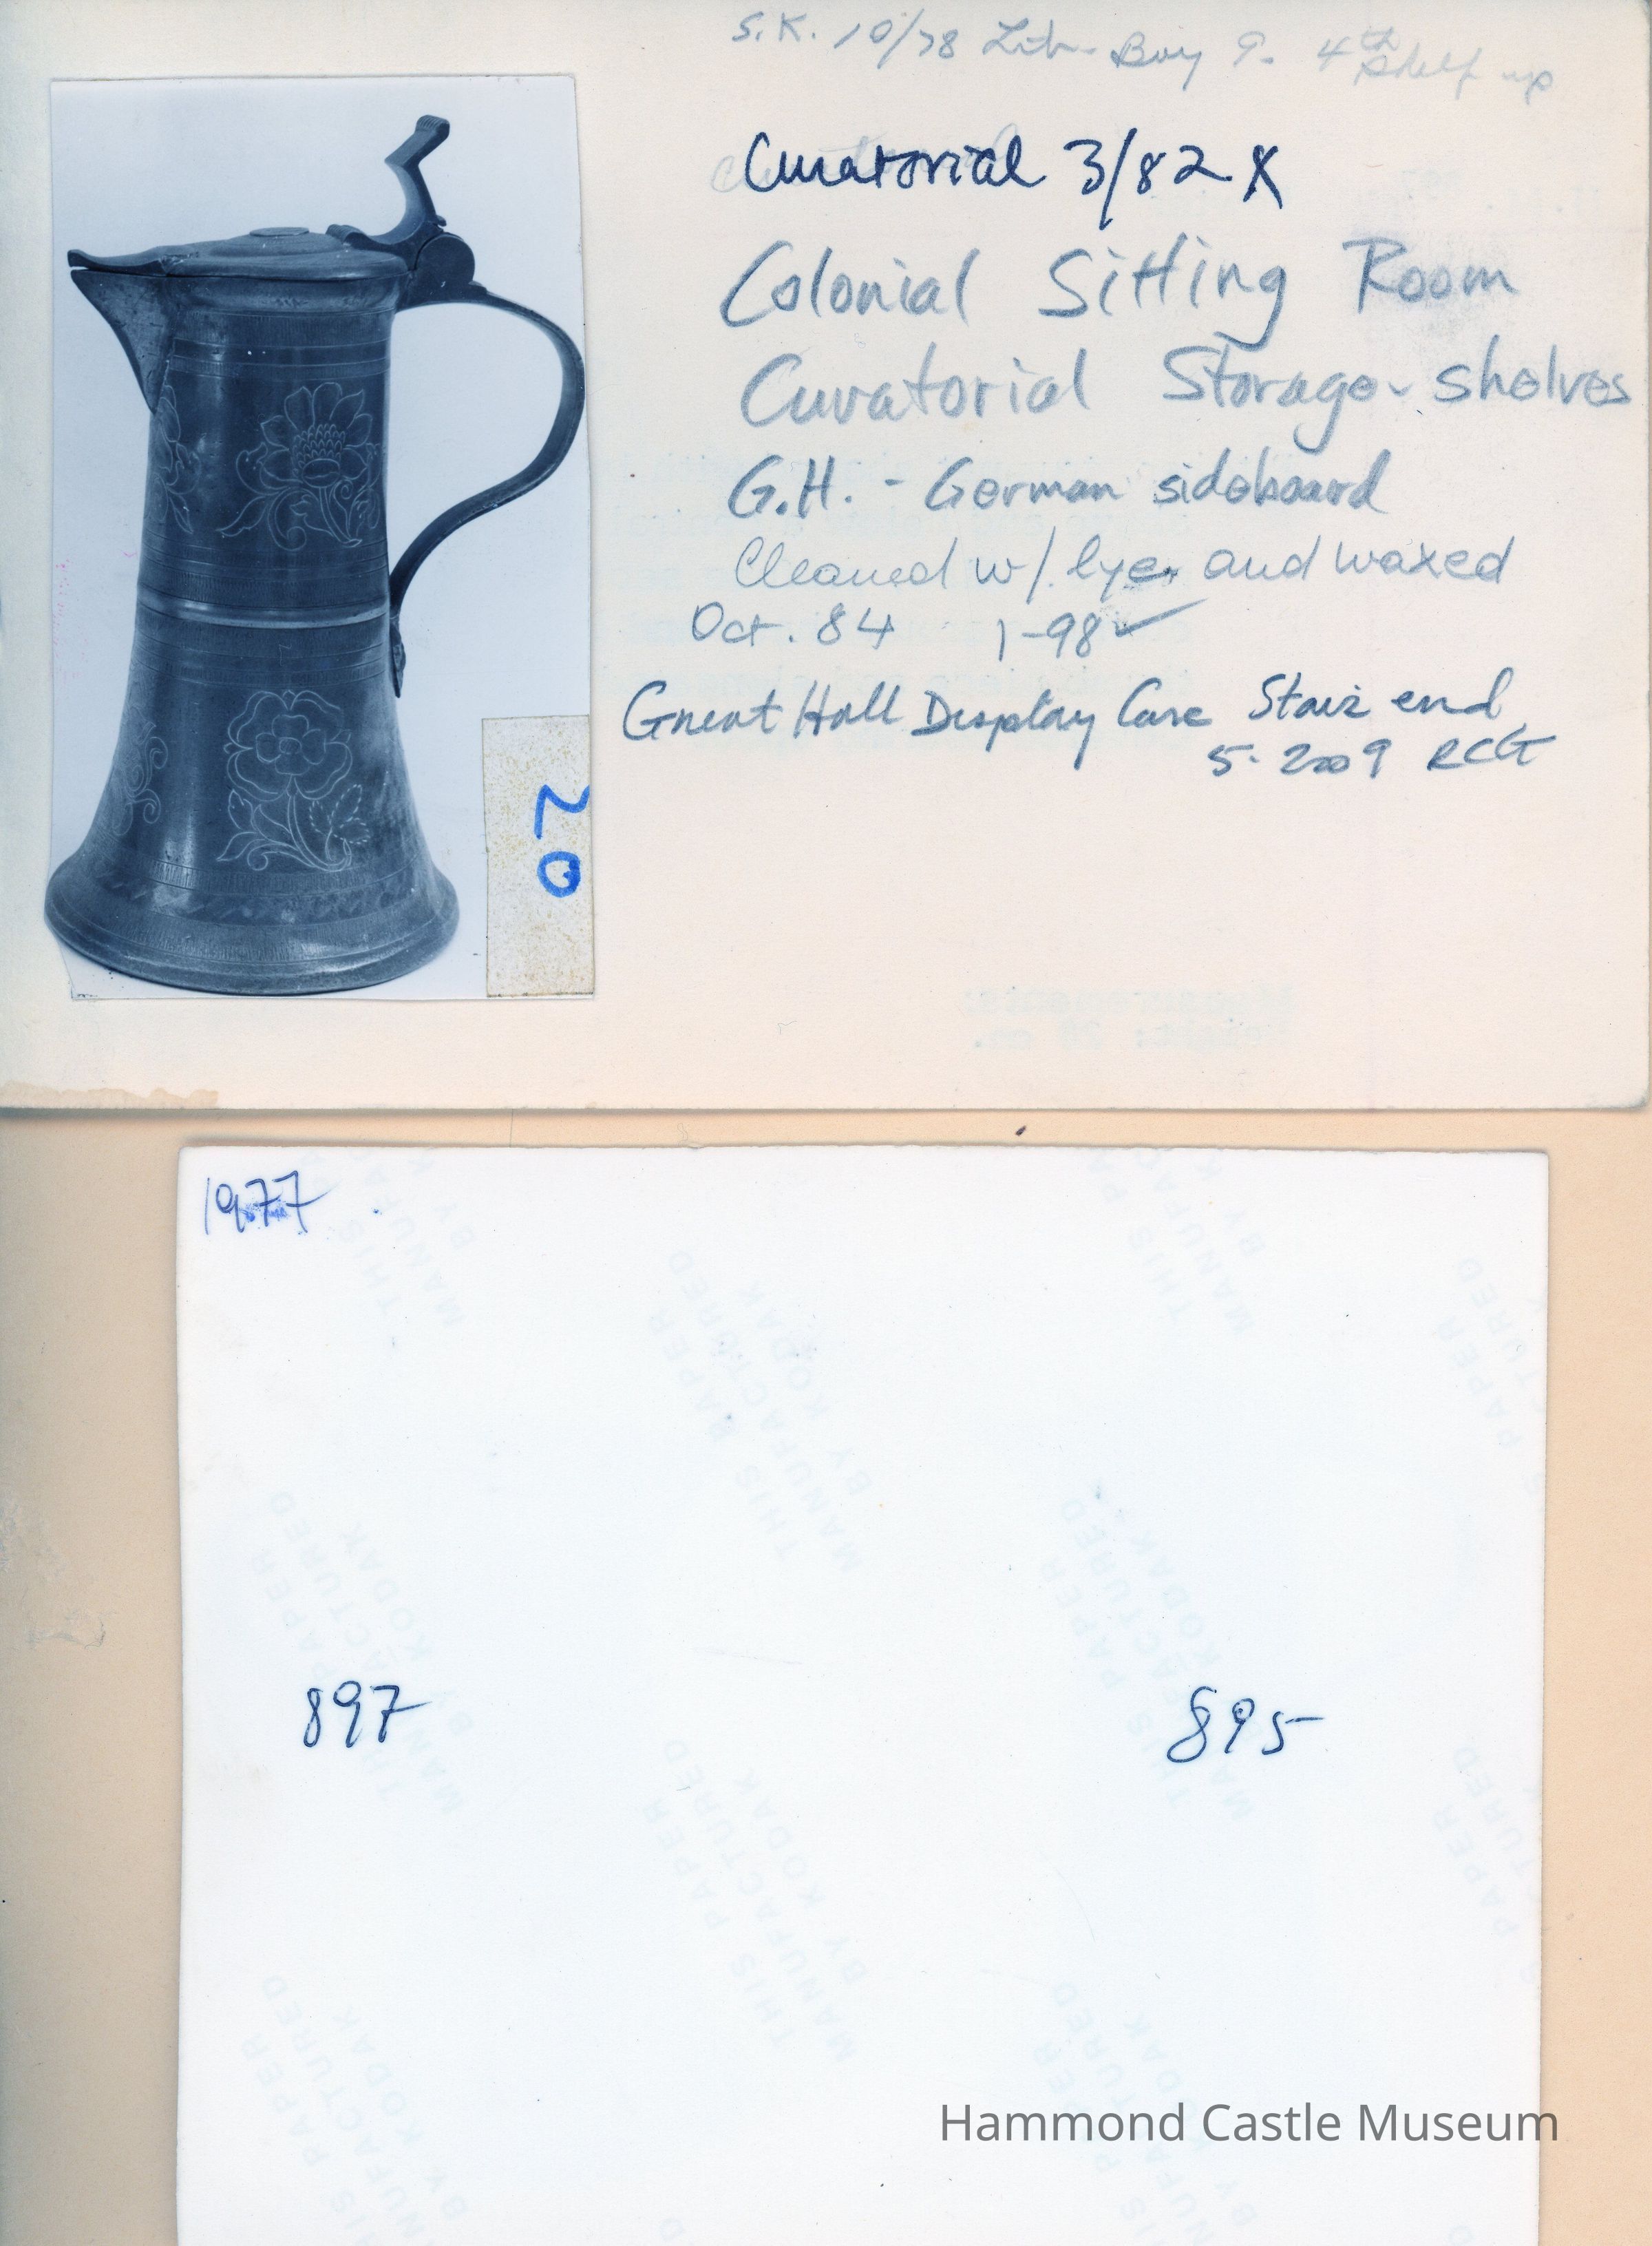 S.K. 10/78 Lib. Bay 9. 4th shelf up
Curatorial 3/82 X
Colonial Sitting Room
Curatorial Storage - shelves
G.H. - German sideboard
Cleaned w/ lye and waxed
Oct. 84 1-98 ✓
Great Hall Display Case Stair end
5-2009 RCG
20
1977
THIS PAPER
MANUFACTURED
BY KODAK
897
895
Hammond Castle Museum